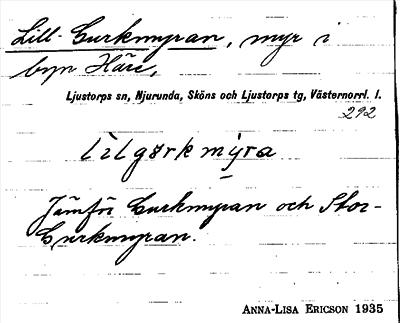 Lill-Gurkmyran, myr i
byn Häre,
Ljustorps sn, Njurunda, Sköns och Ljustorps tg, Västernorrl. l.
292
lìlgørkmýra
Jämför Gurkmyran och Stor-
Gurkmyran.
ANNA-LISA ERICSON 1935